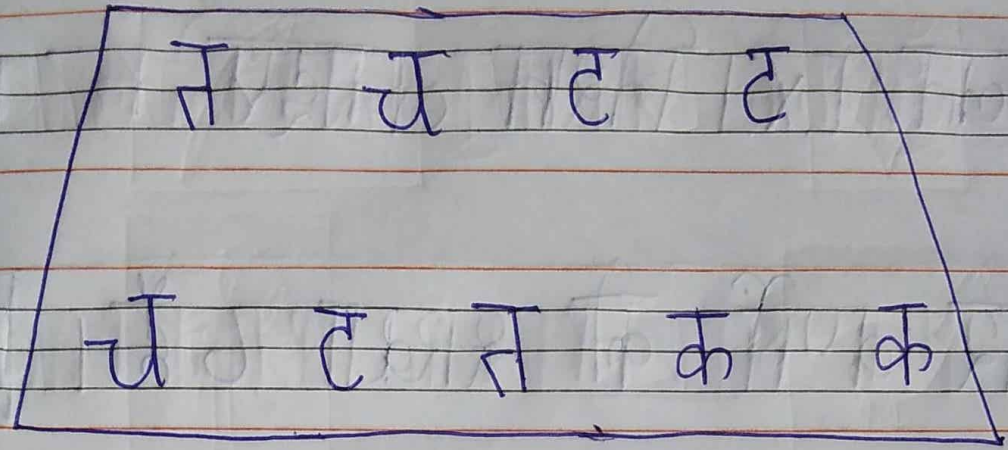 त च ट ट
च ट त क क